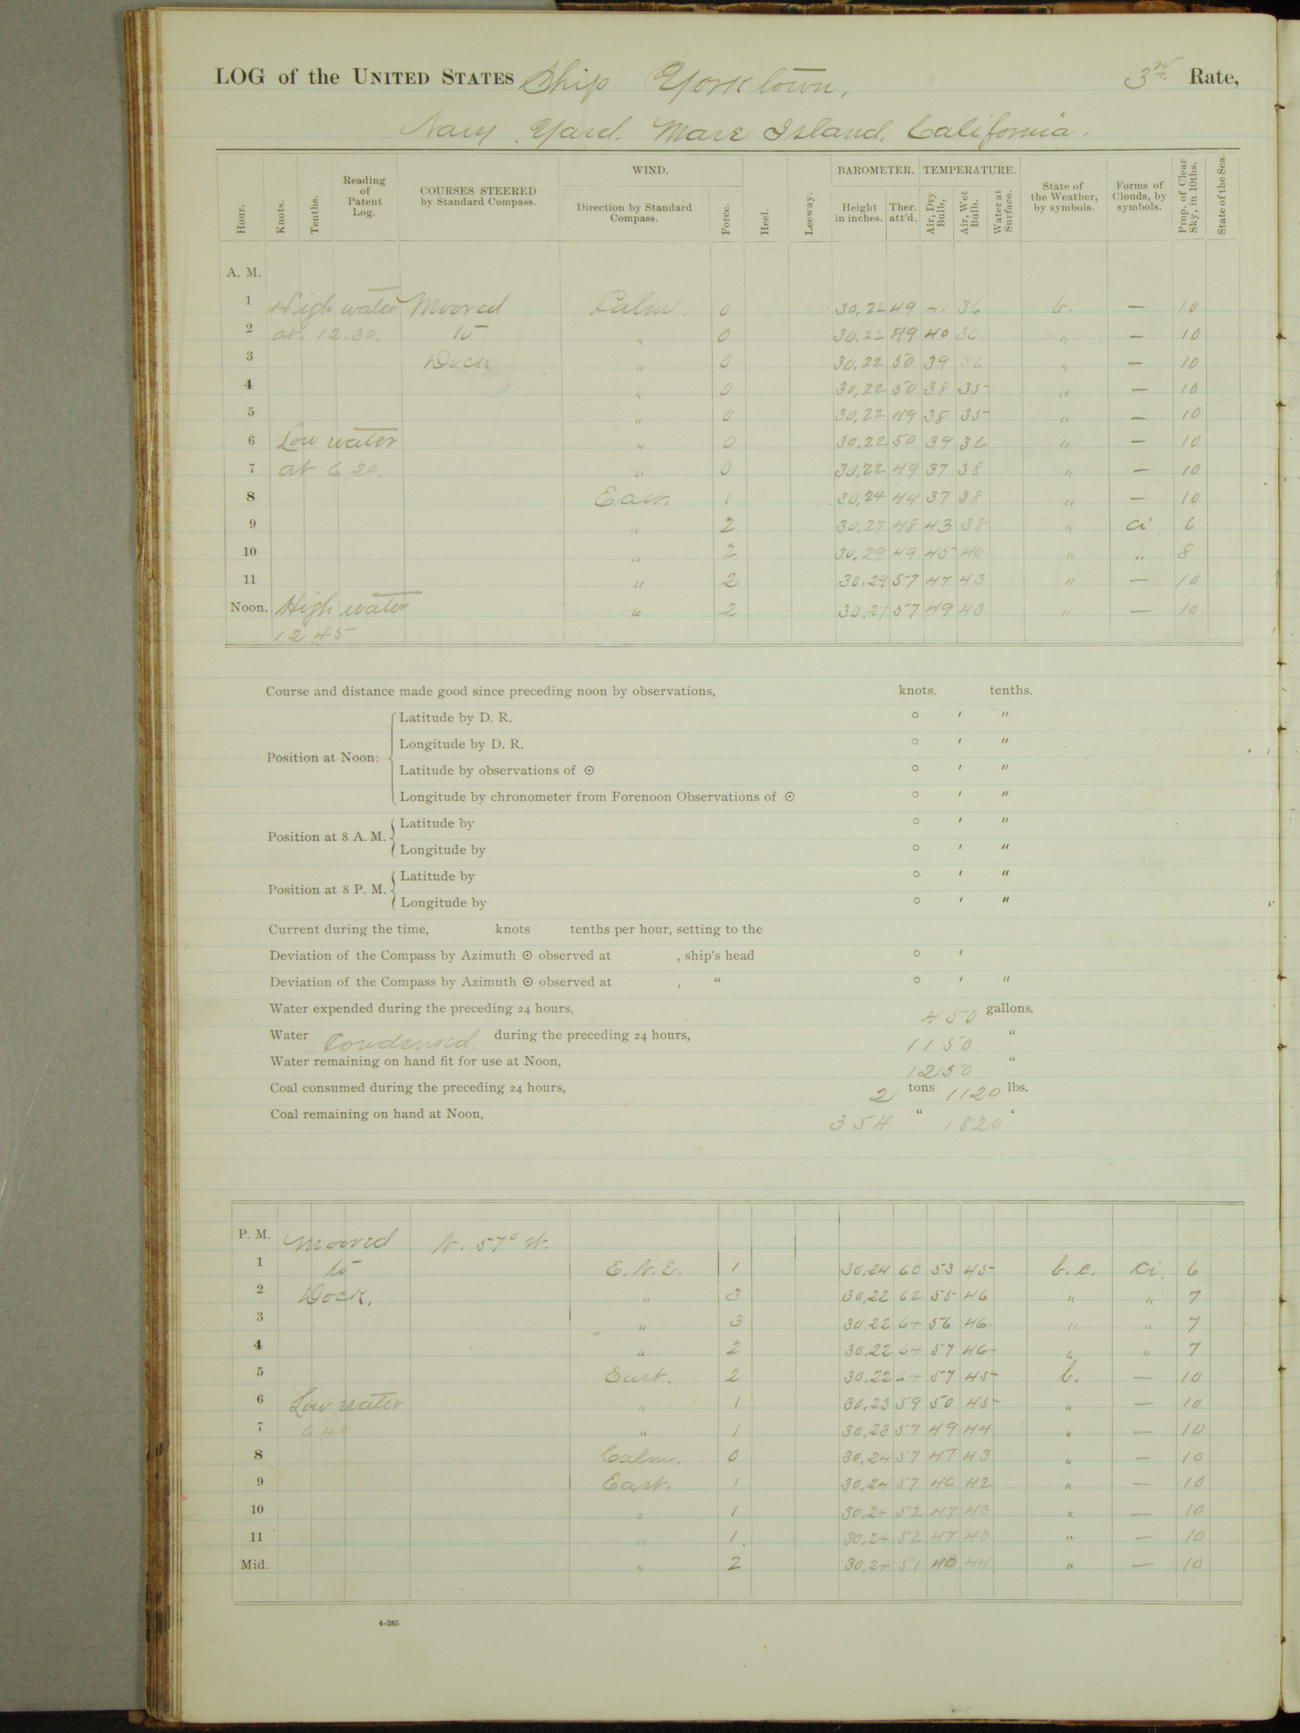 LOG of the UNITED STATES Ship Yorktown, 3rd Rate,
Navy Yard. Mare Island, California.
Hour. Knots. Tenths. Reading of Patent Log. COURSES STEERED by Standard Compass. WIND. Direction by Standard Compass. Force. Heel. Leeway. BAROMETER. Height in inches. Ther. att'd. TEMPERATURE. Air, Dry Bulb, Air, Wet Bulb. Water at Surface. State of the Weather, by symbols. Forms of Clouds, by symbols. Prop. of Clear Sky, in 10ths. State of the Sea.
A. M.
1 High water Moored Calm. 0 30,22 49 41 36 b. — 10
2 at 12.30. to " 0 30.22 49 40 36 " — 10
3 Dock " 0 30,22 50 39 36 " — 10
4 " 0 30,22 50 38 35 " — 10
5 " 0 30,22 49 38 35 " — 10
6 Low water " 0 30,22 50 39 36 " — 10
7 at 6.20. " 0 30,22 49 37 38 " — 10
8 East. 1 30,24 44 37 38 " — 10
9 " 2 30,27 48 43 38 " ci 6
10 " 2 30,29 49 45 40 " " 8
11 " 2 30,29 57 47 43 " — 10
Noon. High water " 2 30,27 57 49 43 " — 10
12.45
Course and distance made good since preceding noon by observations, knots. tenths.
Position at Noon:
Latitude by D. R. ° ′ ″
Longitude by D. R. ° ′ ″
Latitude by observations of ☉ ° ′ ″
Longitude by chronometer from Forenoon Observations of ☉ ° ′ ″
Position at 8 A. M.
Latitude by ° ′ ″
Longitude by ° ′ ″
Position at 8 P. M.
Latitude by ° ′ ″
Longitude by ° ′ ″
Current during the time, knots tenths per hour, setting to the
Deviation of the Compass by Azimuth ☉ observed at , ship's head ° ′
Deviation of the Compass by Azimuth ☉ observed at , " ° ′ ″
Water expended during the preceding 24 hours, 450 gallons.
Water Condensed. during the preceding 24 hours, 1150 "
Water remaining on hand fit for use at Noon, 1250 "
Coal consumed during the preceding 24 hours, 2 tons 1120 lbs.
Coal remaining on hand at Noon, 354 " 1820 "
P. M. Moored N. 57° W.
1 to E.N.E. 1 30,24 60 53 45 b.c. ci. 6
2 Dock. " 3 30,22 62 55 46 " " 7
3 " 3 30.22 64 56 46 " " 7
4 " 2 30.22 64 57 46 " " 7
5 East. 2 30,22 64 57 45 b. — 10
6 Low water " 1 30,23 59 50 45 " — 10
7 6 40 " 1 30,23 57 49 44 " — 10
8 Calm. 0 30,24 57 47 43 " — 10
9 East. 1 30,24 57 46 42 " — 10
10 " 1 30,24 52 47 43 " — 10
11 " 1. 30,24 52 47 43 " — 10
Mid. " 2 30,24 51 44 " — 10
4-265